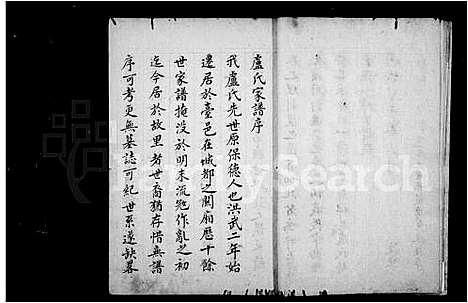 盧氏家譜序
我盧氏先世原保德人也洪武二年始
遷居於臺邑在城都之關廂歷十餘
世家譜掩没於明末流宼作亂之初
迄今居於故里者世裔猶存惜無譜
序可考更無墓誌可紀世系遂缺畧
FamilySearch